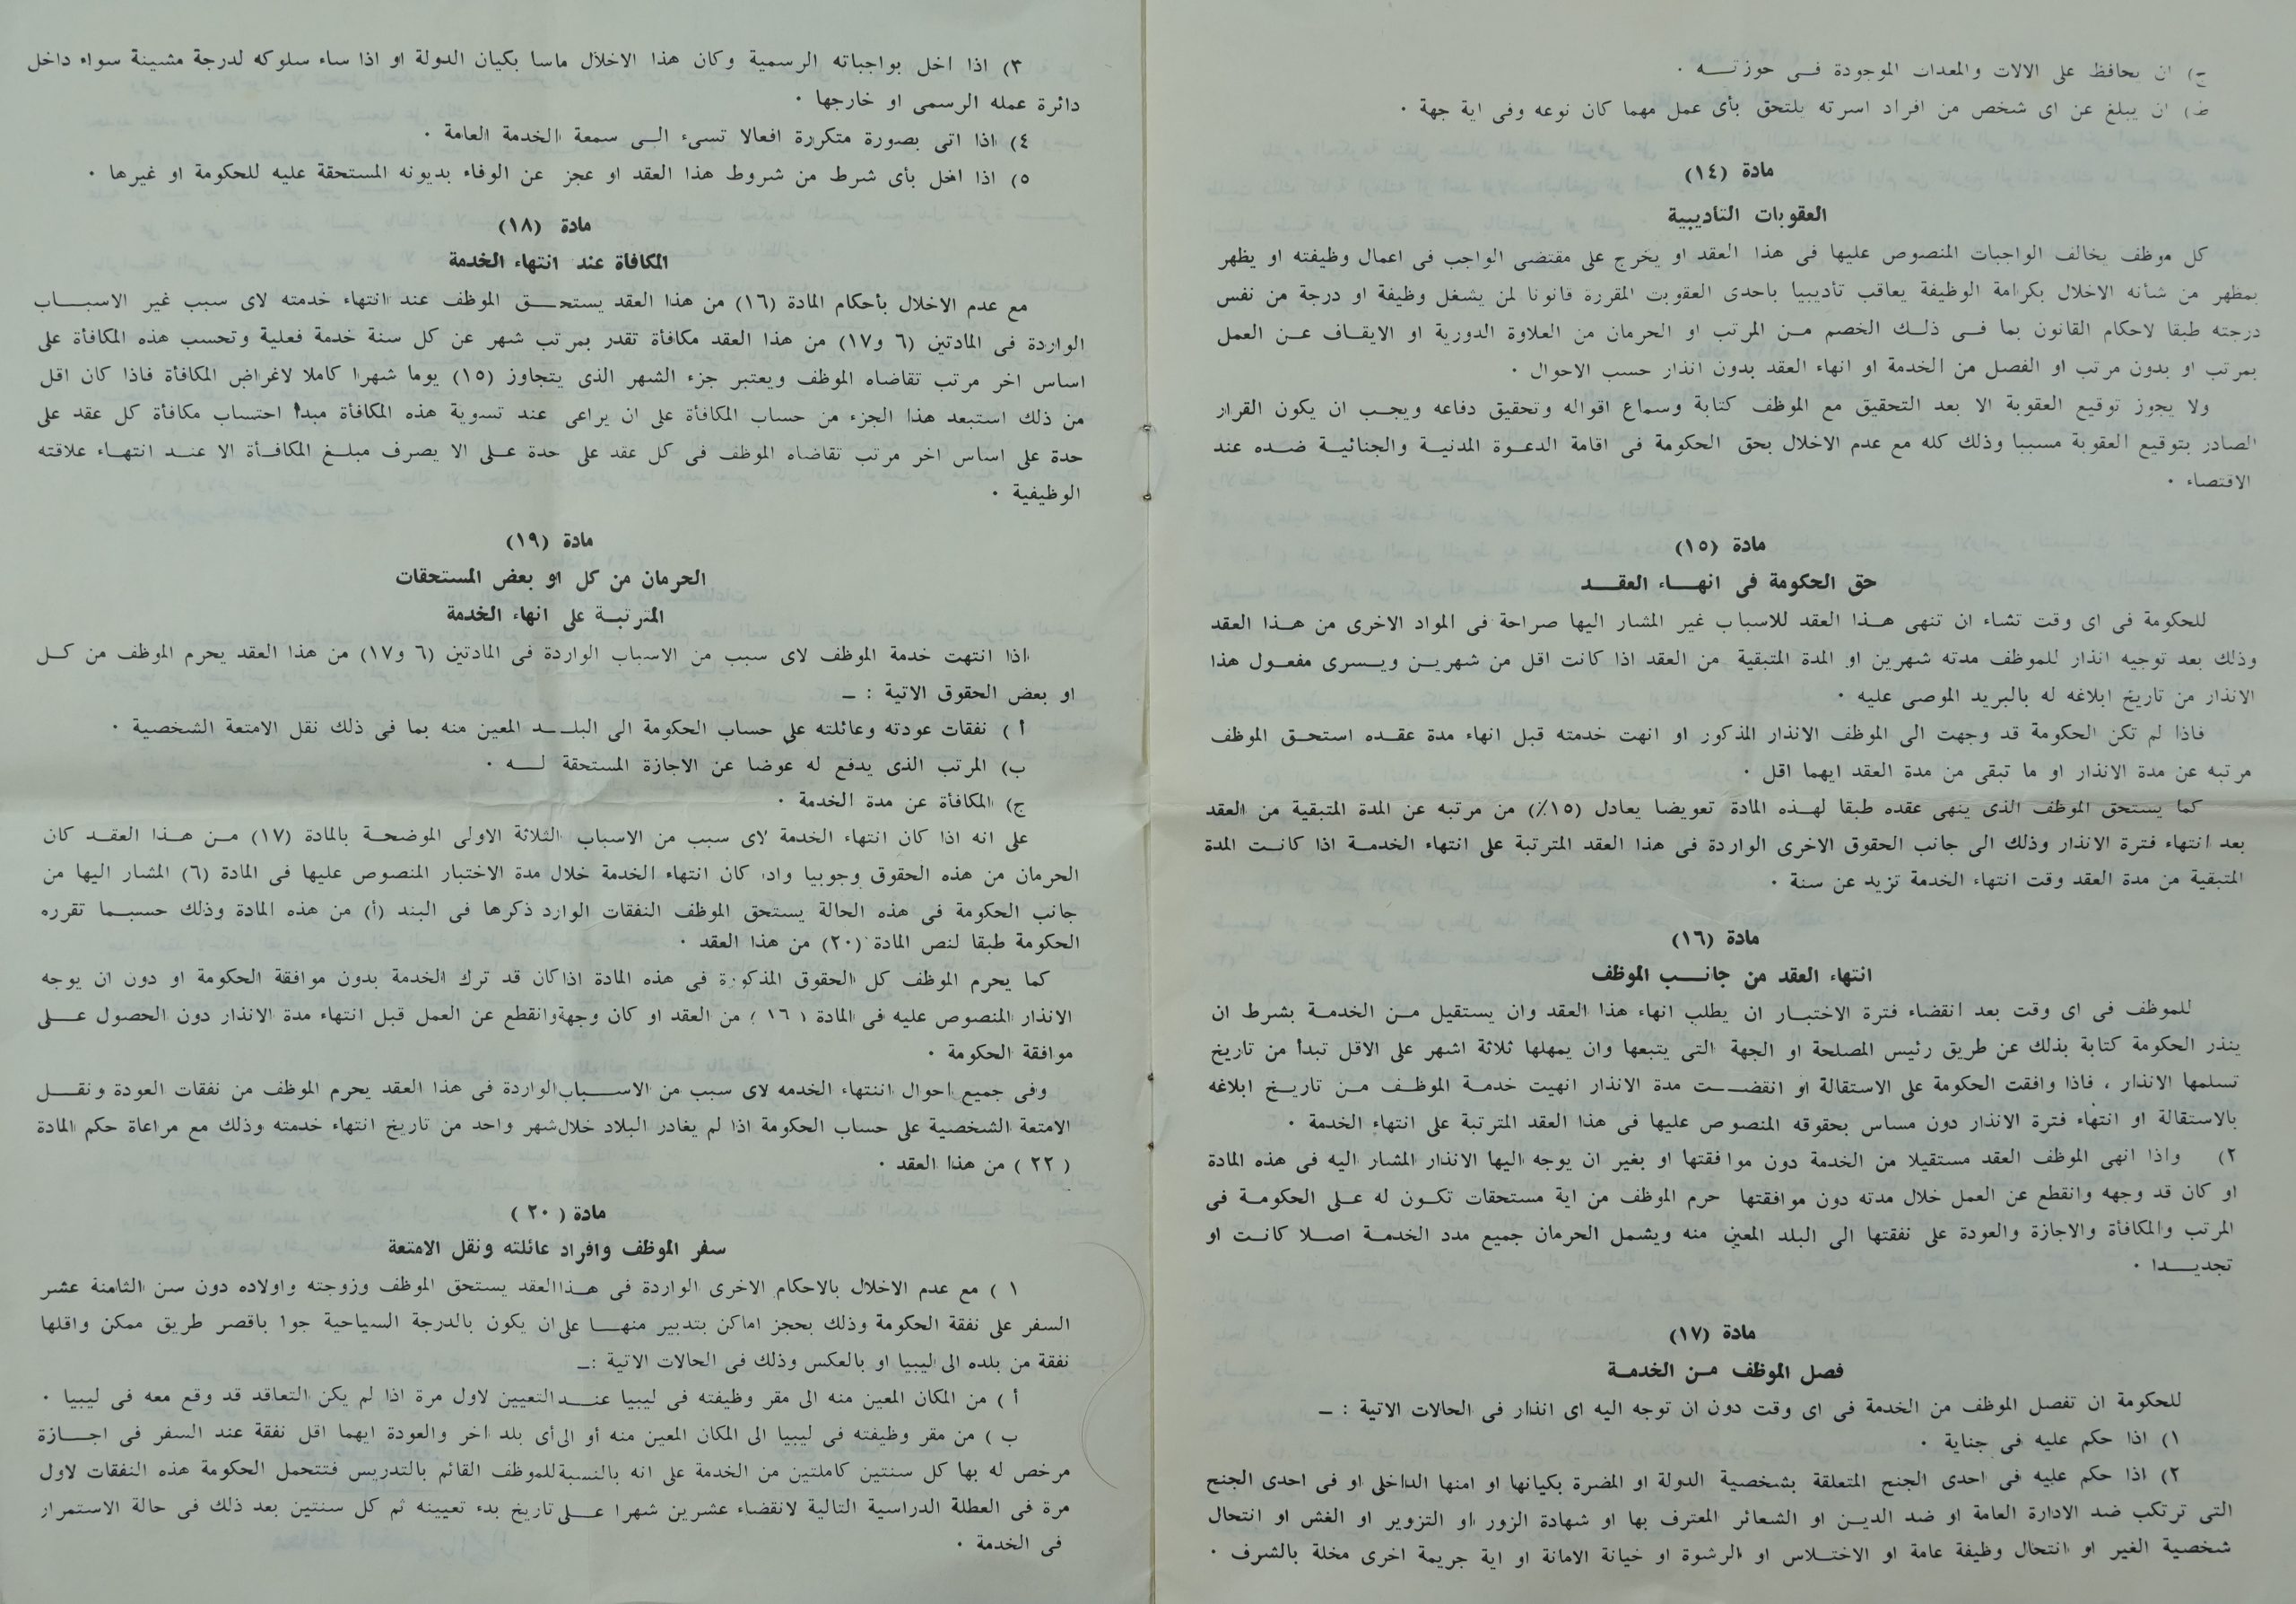 ح) ان يحافظ على الالات والمعدات الموجودة فى حوزته .
ط) ان يبلغ عن اى شخص من افراد اسرته يلتحق بأى عمل مهما كان نوعه وفى اية جهة .
مادة (١٤)
العقوبات التأديبية
كل موظف يخالف الواجبات المنصوص عليها فى هذا العقد او يخرج على مقتضى الواجب فى اعمال وظيفته او يظهر
بمظهر من شأنه الاخلال بكرامة الوظيفة يعاقب تأديبيا باحدى العقوبت المقررة قانونا لمن يشغل وظيفة او درجة من نفس
درجته طبقا لاحكام القانون بما فى ذلك الخصم من المرتب او الحرمان من العلاوة الدورية او الايقاف عن العمل
بمرتب او بدون مرتب او الفصل من الخدمة او انهاء العقد بدون انذار حسب الاحوال .
ولا يجوز توقيع العقوبة الا بعد التحقيق مع الموظف كتابة وسماع اقواله وتحقيق دفاعه ويجب ان يكون القرار
الصادر بتوقيع العقوبة مسببا وذلك كله مع عدم الاخلال بحق الحكومة فى اقامة الدعوة المدنية والجنائية ضده عند
الاقتضاء .
مادة (١٥)
حق الحكومة فى انهاء العقد
للحكومة فى اى وقت تشاء ان تنهى هذا العقد للاسباب غير المشار اليها صراحة فى المواد الاخرى من هذا العقد
وذلك بعد توجيه انذار للموظف مدته شهرين او المدة المتبقية من العقد اذا كانت اقل من شهرين ويسرى مفعول هذا
الانذار من تاريخ ابلاغه له بالبريد الموصى عليه .
فاذا لم تكن الحكومة قد وجهت الى الموظف الانذار المذكور او انهت خدمته قبل انهاء مدة عقده استحق الموظف
مرتبه عن مدة الانذار او ما تبقى من مدة العقد ايهما اقل .
كما يستحق الموظف الذى ينهى عقده طبقا لهذه المادة تعويضا يعادل (١٥٪) من مرتبه عن المدة المتبقية من العقد
بعد انتهاء فترة الانذار وذلك الى جانب الحقوق الاخرى الواردة فى هذا العقد المترتبة على انتهاء الخدمة اذا كانت المدة
المتبقية من مدة العقد وقت انتهاء الخدمة تزيد عن سنة .
مادة (١٦)
انتهاء العقد من جانب الموظف
للموظف فى اى وقت بعد انقضاء فترة الاختبار ان يطلب انهاء هذا العقد وان يستقيل من الخدمة بشرط ان
ينذر الحكومة كتابة بذلك عن طريق رئيس المصلحة او الجهة التى يتبعها وان يمهلها ثلاثة اشهر على الاقل تبدأ من تاريخ
تسلمها الانذار ، فاذا وافقت الحكومة على الاستقالة او انقضت مدة الانذار انهيت خدمة الموظف من تاريخ ابلاغه
بالاستقالة او انتهاء فترة الانذار دون مساس بحقوقه المنصوص عليها فى هذا العقد المترتبة على انتهاء الخدمة .
٢) واذا انهى الموظف العقد مستقيلا من الخدمة دون موافقتها او بغير ان يوجه اليها الانذار المشار اليه فى هذه المادة
او كان قد وجهه وانقطع عن العمل خلال مدته دون موافقتها حرم الموظف من اية مستحقات تكون له على الحكومة فى
المرتب والمكافأة والاجازة والعودة على نفقتها الى البلد المعين منه ويشمل الحرمان جميع مدد الخدمة اصلا كانت او
تجديدا .
مادة (١٧)
فصل الموظف من الخدمة
للحكومة ان تفصل الموظف من الخدمة فى اى وقت دون ان توجه اليه اى انذار فى الحالات الاتية : ـ
١) اذا حكم عليه فى جناية .
٢) اذا حكم عليه فى احدى الجنح المتعلقة بشخصية الدولة او المضرة بكيانها او امنها الداخلى او فى احدى الجنح
التى ترتكب ضد الادارة العامة او ضد الدين او الشعائر المعترف بها او شهادة الزور او التزوير او الغش او انتحال
شخصية الغير او انتحال وظيفة عامة او الاختلاس او الرشوة او خيانة الامانة او اية جريمة اخرى مخلة بالشرف .
٣) اذا اخل بواجباته الرسمية وكان هذا الاخلال ماسا بكيان الدولة او اذا ساء سلوكه لدرجة مشينة سواء داخل
دائرة عمله الرسمى او خارجها .
٤) اذا اتى بصورة متكررة افعالا تسىء الى سمعة الخدمة العامة .
٥) اذا اخل بأى شرط من شروط هذا العقد او عجز عن الوفاء بديونه المستحقة عليه للحكومة او غيرها .
مادة (١٨)
المكافاة عند انتهاء الخدمة
مع عدم الاخلال بأحكام المادة (١٦) من هذا العقد يستحق الموظف عند انتهاء خدمته لاى سبب غير الاسباب
الواردة فى المادتين (٦ و١٧) من هذا العقد مكافأة تقدر بمرتب شهر عن كل سنة خدمة فعلية وتحسب هذه المكافأة على
اساس اخر مرتب تقاضاه الموظف ويعتبر جزء الشهر الذى يتجاوز (١٥) يوما شهرا كاملا لاغراض المكافأة فاذا كان اقل
من ذلك استبعد هذا الجزء من حساب المكافأة على ان يراعى عند تسوية هذه المكافأة مبدأ احتساب مكافأة كل عقد على
حدة على اساس اخر مرتب تقاضاه الموظف فى كل عقد على حدة على الا يصرف مبلغ المكافأة الا عند انتهاء علاقته
الوظيفية .
مادة (١٩)
الحرمان من كل او بعض المستحقات
المترتبة على انهاء الخدمة
اذا انتهت خدمة الموظف لاى سبب من الاسباب الواردة فى المادتين (٦ و١٧) من هذا العقد يحرم الموظف من كل
او بعض الحقوق الاتية : ـ
أ ) نفقات عودته وعائلته على حساب الحكومة الى البلد المعين منه بما فى ذلك نقل الامتعة الشخصية .
ب) المرتب الذى يدفع له عوضا عن الاجازة المستحقة له .
ج) المكافأة عن مدة الخدمة .
على انه اذا كان انتهاء الخدمة لاى سبب من الاسباب الثلاثة الاولى الموضحة بالمادة (١٧) من هذا العقد كان
الحرمان من هذه الحقوق وجوبيا واذا كان انتهاء الخدمة خلال مدة الاختبار المنصوص عليها فى المادة (٦) المشار اليها من
جانب الحكومة فى هذه الحالة يستحق الموظف النفقات الوارد ذكرها فى البند (أ) من هذه المادة وذلك حسبما تقرره
الحكومة طبقا لنص المادة (٢٠) من هذا العقد .
كما يحرم الموظف كل الحقوق المذكورة فى هذه المادة اذا كان قد ترك الخدمة بدون موافقة الحكومة او دون ان يوجه
الانذار المنصوص عليه فى المادة (١٦) من العقد او كان وجهة وانقطع عن العمل قبل انتهاء مدة الانذار دون الحصول على
موافقة الحكومة .
وفى جميع احوال اننتهاء الخدمه لاى سبب من الاسباب الواردة فى هذا العقد يحرم الموظف من نفقات العودة ونقل
الامتعة الشخصية على حساب الحكومة اذا لم يغادر البلاد خلال شهر واحد من تاريخ انتهاء خدمته وذلك مع مراعاة حكم المادة
( ٢٢ ) من هذا العقد .
مادة ( ٢٠ )
سفر الموظف وافراد عائلته ونقل الامتعة
١ ) مع عدم الاخلال بالاحكام الاخرى الواردة فى هذا العقد يستحق الموظف وزوجته واولاده دون سن الثامنة عشر
السفر على نفقة الحكومة وذلك بحجز اماكن بتدبير منها على ان يكون بالدرجة السياحية جوا باقصر طريق ممكن واقلها
نفقة من بلده الى ليبيا او بالعكس وذلك فى الحالات الاتية :ـ
أ ) من المكان المعين منه الى مقر وظيفته فى ليبيا عند التعيين لاول مرة اذا لم يكن التعاقد قد وقع معه فى ليبيا .
ب ) من مقر وظيفته فى ليبيا الى المكان المعين منه أو الى أى بلد اخر والعودة ايهما اقل نفقة عند السفر فى اجازة
مرخص له بها كل سنتين كاملتين من الخدمة على انه بالنسبة للموظف القائم بالتدريس فتتحمل الحكومة هذه النفقات لاول
مرة فى العطلة الدراسية التالية لانقضاء عشرين شهرا على تاريخ بدء تعيينه ثم كل سنتين بعد ذلك فى حالة الاستمرار
فى الخدمة .